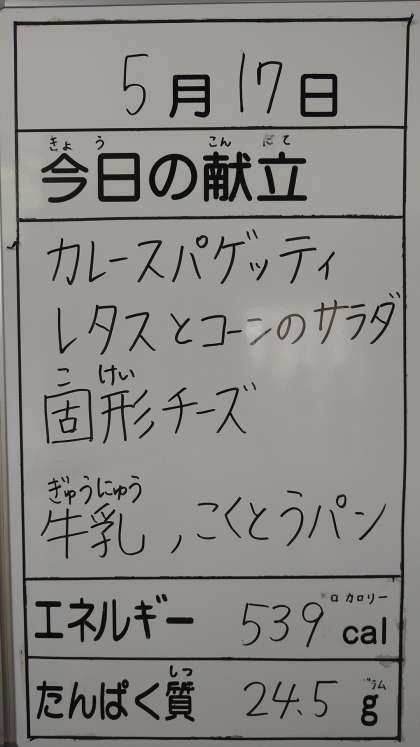 5月17日
きょう こんだて
今日の献立
カレースパゲッティ
レタスとコーンのサラダ
こ けい
固形チーズ
ぎゅうにゅう
牛乳, こくとうパン
ロカロリー
エネルギー 539 cal
しつ グラム
たんぱく質 24.5 g